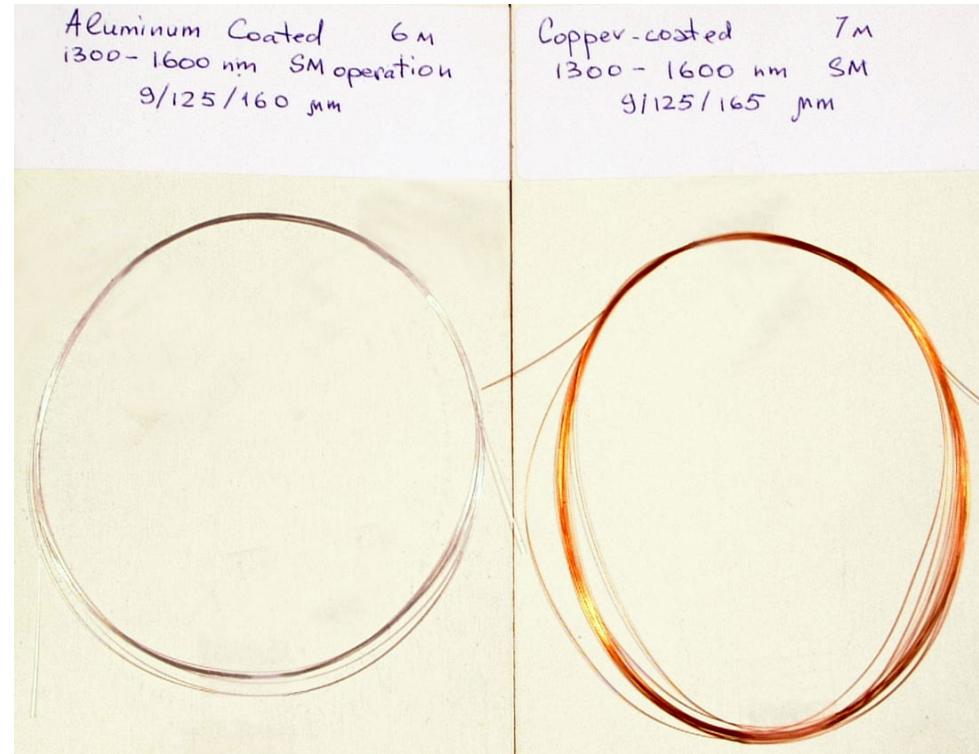 Aluminum Coated 6 M
1300 - 1600 nm SM operation
9/125/160 μm
Copper-coated 7M
1300 - 1600 nm SM
9/125/165 μm